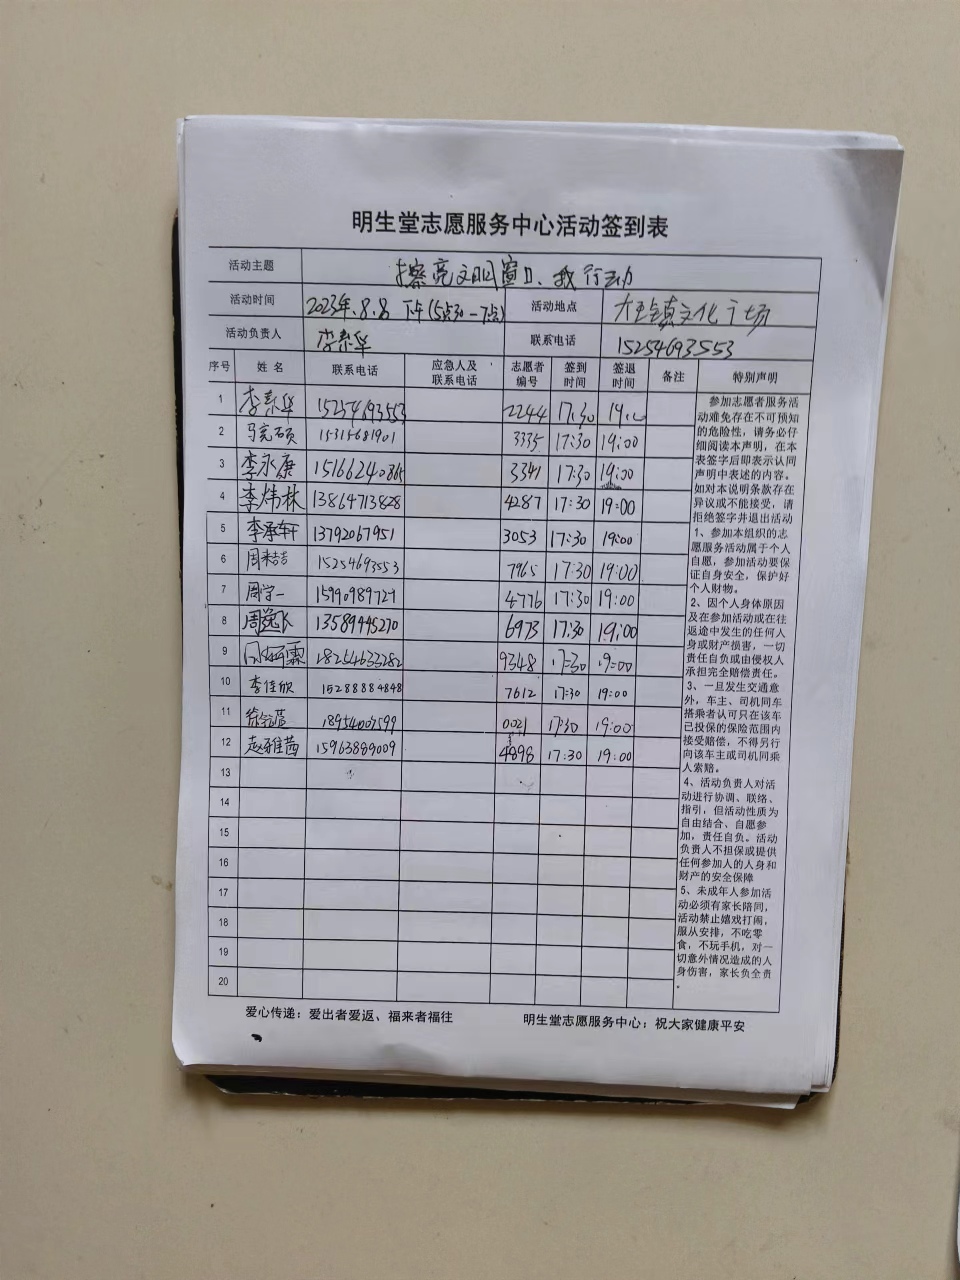 明生堂志愿服务中心活动签到表
活动主题 擦亮文明窗口、我行动
活动时间 2023年.8.8 下午(5点30-7点) 活动地点 大王镇文化广场
活动负责人 李素华 联系电话 15254693553
序号 姓名 联系电话 应急人及联系电话 志愿者编号 签到时间 签退时间 备注 特别声明
1 李素华 15254693553 2244 17:30
2 马亮硕 15315681901 3335 17:30 19:00
3 李永康 15166240865 3341 17:30 19:00
4 李炜林 13864713828 4287 17:30 19:00
5 李承轩 13792067951 3053 17:30 19:00
6 15254693553 7965 17:30 19:00
7 周学一 15990989727 4776 17:30 19:00
8 周逸飞 13589445270 6973 17:30 19:00
9 18254633282 9348 17:30 19:00
10 李佳欣 15288884848 7612 17:30 19:00
11 18954007599 0021 17:30 19:00
12 赵雅茜 15963889009 4898 17:30 19:00
13
14
15
16
17
18
19
20
参加志愿者服务活
动难免存在不可预知
的危险性，请务必仔
细阅读本声明，在本
表签字后即表示认同
声明中表述的内容。
如对本说明条款存在
异议或不能接受，请
拒绝签字并退出活动
1、参加本组织的志
愿服务活动属于个人
自愿，参加活动要保
证自身安全，保护好
个人财物。
2、因个人身体原因
及在参加活动或在往
返途中发生的任何人
身或财产损害，一切
责任自负或由侵权人
承担完全赔偿责任。
3、一旦发生交通意
外，车主、司机同车
搭乘者认可只在该车
已投保的保险范围内
接受赔偿，不得另行
向该车主或司机同乘
人索赔。
4、活动负责人对活
动进行协调、联络、
指引，但活动性质为
自由结合、自愿参
加，责任自负。活动
负责人不担保或提供
任何参加人的人身和
财产的安全保障
5、未成年人参加活
动必须有家长陪同，
活动禁止嬉戏打闹，
服从安排，不吃零
食，不玩手机，对一
切意外情况造成的人
身伤害，家长负全责
。
爱心传递：爱出者爱返、福来者福往 明生堂志愿服务中心：祝大家健康平安